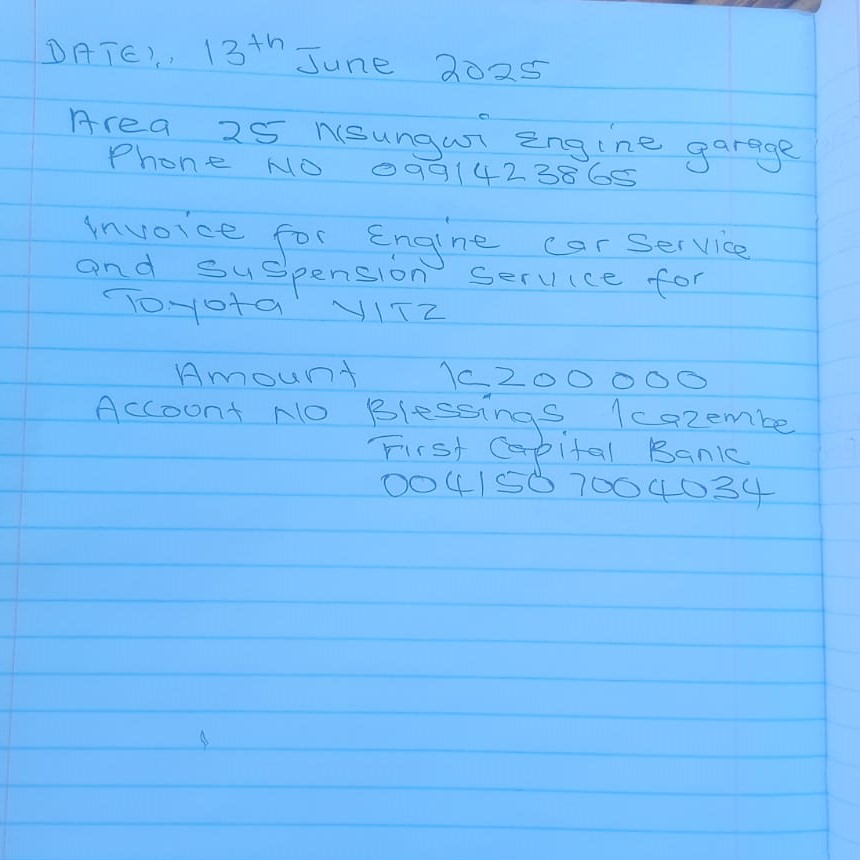 DATE:, 13th June 2025
Area 25 Nsungwi Engine garage
Phone NO 0991423865
Invoice for Engine car service
and suspension service for
Toyota VITZ
Amount K200 000
Account NO Blessings Kazembe
First Capital Bank
0041507004034